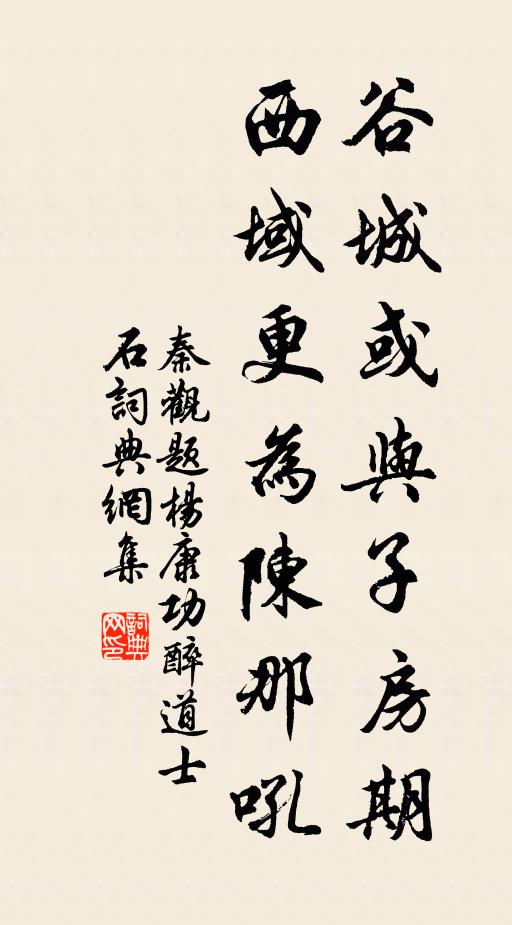 谷城或與子房期
西域更為陳那吼
秦觀題楊康功醉道士
石詞典網集
詞典网印